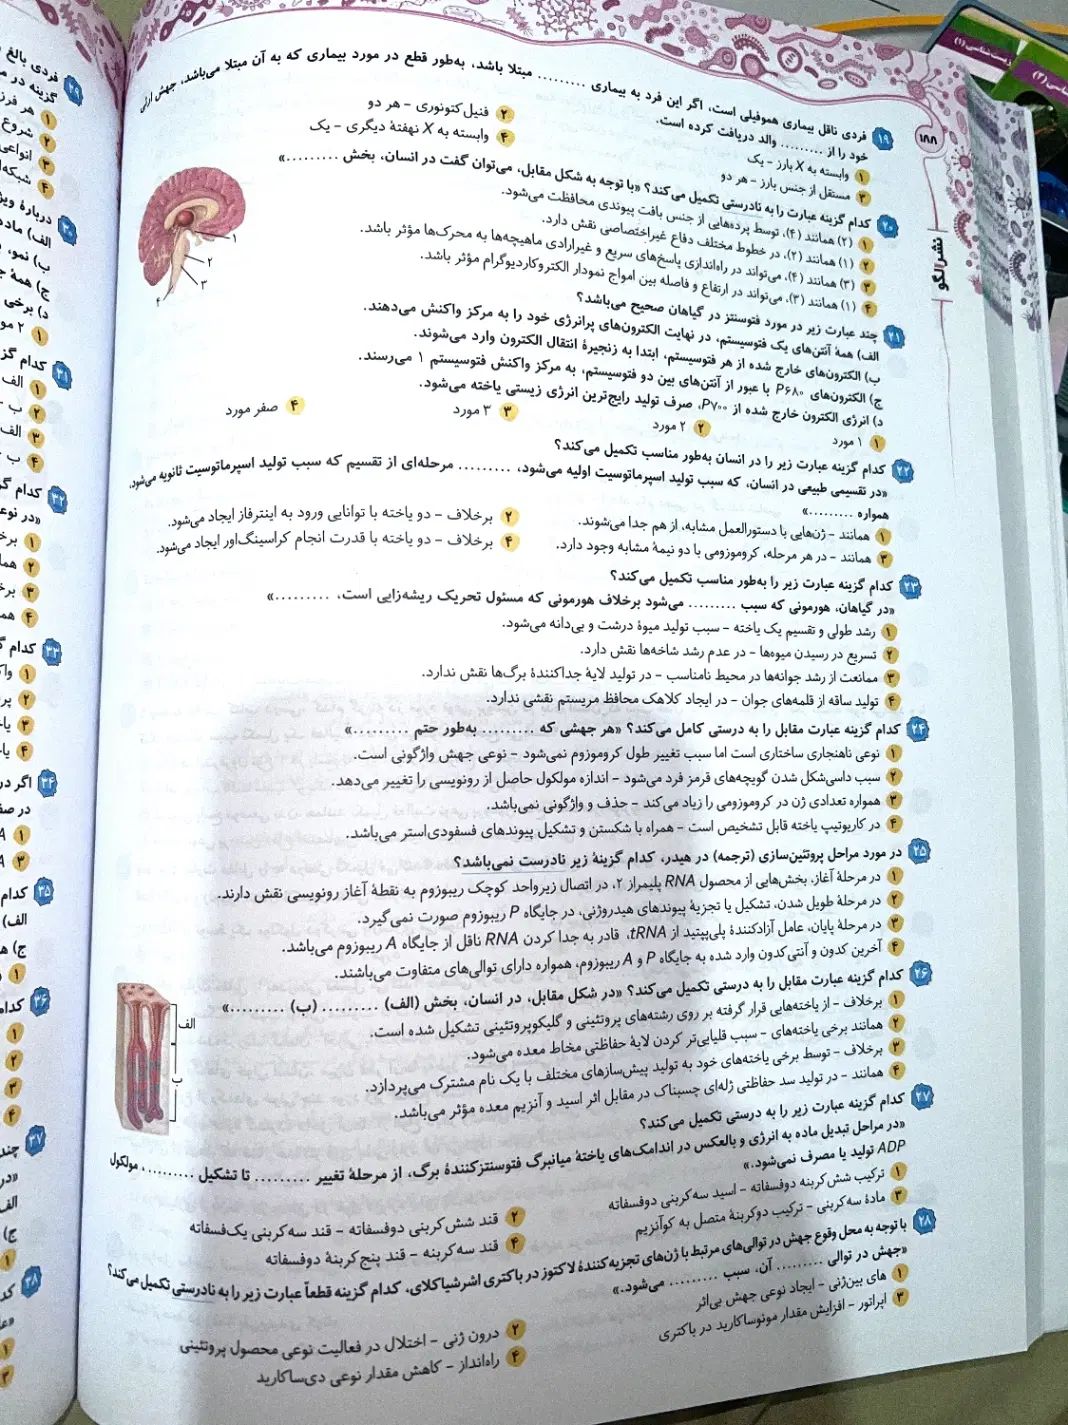 ۱۸۸
نشر الگو
۱۹ فردی ناقل بیماری هموفیلی است، اگر این فرد به بیماری ......... مبتلا باشد، به‌طور قطع در مورد بیماری که به آن مبتلا می‌باشد، جهش ارثی
خود را از ......... والد دریافت کرده است.
۱ وابسته به X بارز - یک
۲ فنیل‌کتونوری - هر دو
۳ مستقل از جنس بارز - هر دو
۴ وابسته به X نهفتهٔ دیگری - یک
۲۰ کدام گزینه عبارت را به نادرستی تکمیل می‌کند؟ «با توجه به شکل مقابل، می‌توان گفت در انسان، بخش .........»
۱ (۲) همانند (۴)، توسط پرده‌هایی از جنس بافت پیوندی محافظت می‌شود.
۲ (۱) همانند (۲)، در خطوط مختلف دفاع غیراختصاصی نقش دارد.
۳ (۳) همانند (۴)، می‌تواند در راه‌اندازی پاسخ‌های سریع و غیرارادی ماهیچه‌ها به محرک‌ها مؤثر باشد.
۴ (۱) همانند (۳)، می‌تواند در ارتفاع و فاصله بین امواج نمودار الکتروکاردیوگرام مؤثر باشد.
۱
۲
۳
۴
۲۱ چند عبارت زیر در مورد فتوسنتز در گیاهان صحیح می‌باشد؟
الف) همهٔ آنتن‌های یک فتوسیستم، در نهایت الکترون‌های پرانرژی خود را به مرکز واکنش می‌دهند.
ب) الکترون‌های خارج شده از هر فتوسیستم، ابتدا به زنجیرهٔ انتقال الکترون وارد می‌شوند.
ج) الکترون‌های P۶۸۰ با عبور از آنتن‌های بین دو فتوسیستم، به مرکز واکنش فتوسیستم ۱ می‌رسند.
د) انرژی الکترون خارج شده از P۷۰۰، صرف تولید رایج‌ترین انرژی زیستی یاخته می‌شود.
۱ ۱ مورد
۲ ۲ مورد
۳ ۳ مورد
۴ صفر مورد
۲۲ کدام گزینه عبارت زیر را در انسان به‌طور مناسب تکمیل می‌کند؟
«در تقسیمی طبیعی در انسان، که سبب تولید اسپرماتوسیت اولیه می‌شود، ......... مرحله‌ای از تقسیم که سبب تولید اسپرماتوسیت ثانویه می‌شود،
همواره .........»
۱ همانند - ژن‌هایی با دستورالعمل مشابه، از هم جدا می‌شوند.
۲ برخلاف - دو یاخته با توانایی ورود به اینترفاز ایجاد می‌شود.
۳ همانند - در هر مرحله، کروموزومی با دو نیمهٔ مشابه وجود دارد.
۴ برخلاف - دو یاخته با قدرت انجام کراسینگ‌اور ایجاد می‌شود.
۲۳ کدام گزینه عبارت زیر را به‌طور مناسب تکمیل می‌کند؟
«در گیاهان، هورمونی که سبب ......... می‌شود برخلاف هورمونی که مسئول تحریک ریشه‌زایی است، .........»
۱ رشد طولی و تقسیم یک یاخته - سبب تولید میوهٔ درشت و بی‌دانه می‌شود.
۲ تسریع در رسیدن میوه‌ها - در عدم رشد شاخه‌ها نقش دارد.
۳ ممانعت از رشد جوانه‌ها در محیط نامناسب - در تولید لایهٔ جداکنندهٔ برگ‌ها نقش ندارد.
۴ تولید ساقه از قلمه‌های جوان - در ایجاد کلاهک محافظ مریستم نقشی ندارد.
۲۴ کدام گزینه عبارت مقابل را به درستی کامل می‌کند؟ «هر جهشی که ......... به‌طور حتم .........»
۱ نوعی ناهنجاری ساختاری است اما سبب تغییر طول کروموزوم نمی‌شود - نوعی جهش واژگونی است.
۲ سبب داسی‌شکل شدن گویچه‌های قرمز فرد می‌شود - اندازه مولکول حاصل از رونویسی را تغییر می‌دهد.
۳ همواره تعدادی ژن در کروموزومی را زیاد می‌کند - حذف و واژگونی نمی‌باشد.
۴ در کاریوتیپ یاخته قابل تشخیص است - همراه با شکستن و تشکیل پیوندهای فسفودی‌استر می‌باشد.
۲۵ در مورد مراحل پروتئین‌سازی (ترجمه) در هیدر، کدام گزینهٔ زیر نادرست نمی‌باشد؟
۱ در مرحلهٔ آغاز، بخش‌هایی از محصول RNA پلیمراز ۲، در اتصال زیرواحد کوچک ریبوزوم به نقطهٔ آغاز رونویسی نقش دارند.
۲ در مرحلهٔ طویل شدن، تشکیل یا تجزیهٔ پیوندهای هیدروژنی، در جایگاه P ریبوزوم صورت نمی‌گیرد.
۳ در مرحلهٔ پایان، عامل آزادکنندهٔ پلی‌پپتید از tRNA، قادر به جدا کردن RNA ناقل از جایگاه A ریبوزوم می‌باشد.
۴ آخرین کدون و آنتی‌کدون وارد شده به جایگاه P و A ریبوزوم، همواره دارای توالی‌های متفاوت می‌باشند.
۲۶ کدام گزینه عبارت مقابل را به درستی تکمیل می‌کند؟ «در شکل مقابل، در انسان، بخش (الف) ......... (ب) .........»
۱ برخلاف - از یاخته‌هایی قرار گرفته بر روی رشته‌های پروتئینی و گلیکوپروتئینی تشکیل شده است.
۲ همانند برخی یاخته‌های - سبب قلیایی‌تر کردن لایهٔ حفاظتی مخاط معده می‌شود.
۳ برخلاف - توسط برخی یاخته‌های خود به تولید پیش‌سازهای مختلف با یک نام مشترک می‌پردازد.
۴ همانند - در تولید سد حفاظتی ژله‌ای چسبناک در مقابل اثر اسید و آنزیم معده مؤثر می‌باشد.
الف
ب
۲۷ کدام گزینه عبارت زیر را به درستی تکمیل می‌کند؟
«در مراحل تبدیل ماده به انرژی و بالعکس در اندامک‌های یاختهٔ میانبرگ فتوسنتزکنندهٔ برگ، از مرحلهٔ تغییر ......... تا تشکیل .........، مولکول
ADP تولید یا مصرف نمی‌شود.»
۱ ترکیب شش‌کربنه دوفسفاته - اسید سه‌کربنی دوفسفاته
۲ قند شش‌کربنی دوفسفاته - قند سه‌کربنی یک‌فسفاته
۳ مادهٔ سه‌کربنی - ترکیب دوکربنهٔ متصل به کوآنزیم
۴ قند سه‌کربنه - قند پنج‌کربنهٔ دوفسفاته
۲۸ با توجه به محل وقوع جهش در توالی‌های مرتبط با ژن‌های تجزیه‌کنندهٔ لاکتوز در باکتری اشرشیاکلای، کدام گزینه قطعاً عبارت زیر را به نادرستی تکمیل می‌کند؟
«جهش در توالی ......... آن، سبب ......... می‌شود.»
۱ های بین‌ژنی - ایجاد نوعی جهش بی‌اثر
۲ درون ژنی - اختلال در فعالیت نوعی محصول پروتئینی
۳ اپراتور - افزایش مقدار مونوساکارید در باکتری
۴ راه‌انداز - کاهش مقدار نوعی دی‌ساکارید